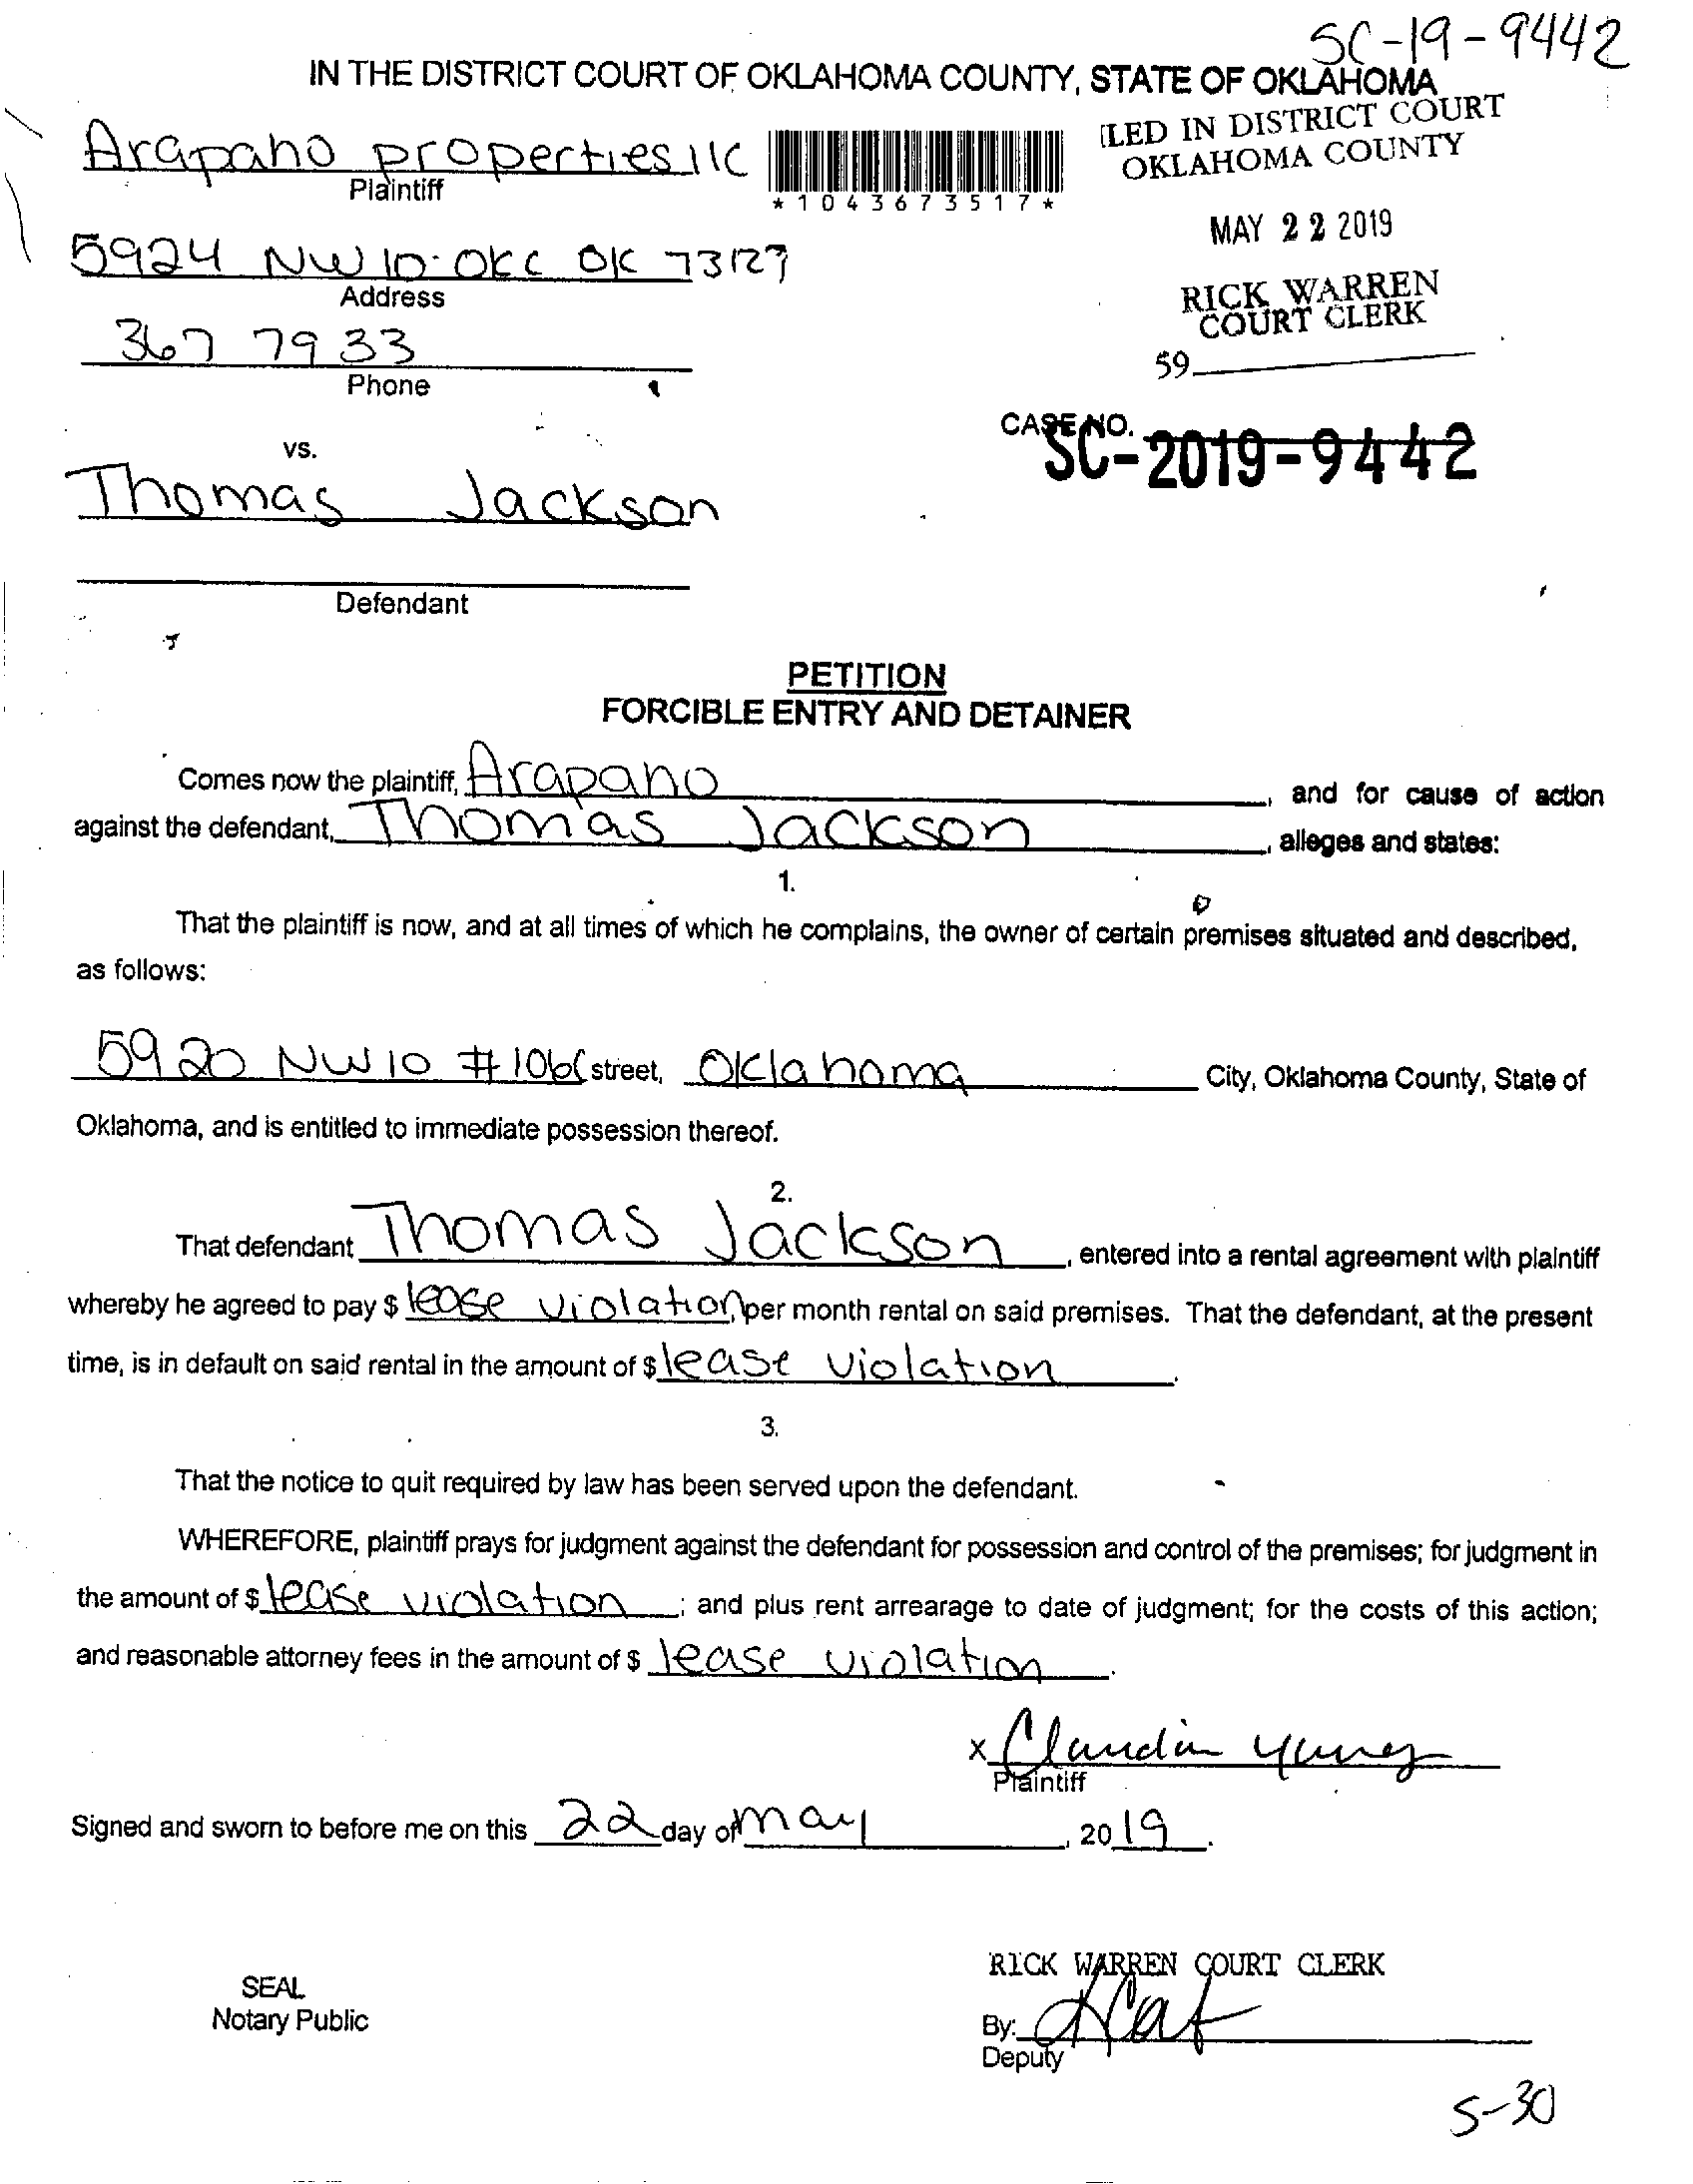 SC-19-9442
IN THE DISTRICT COURT OF OKLAHOMA COUNTY, STATE OF OKLAHOMA
Arapaho properties llc
Plaintiff
*1043673517*
ILED IN DISTRICT COURT
OKLAHOMA COUNTY
MAY 22 2019
RICK WARREN
COURT CLERK
59
5924 NW 10 OKC OK 73127
Address
367 7933
Phone
CASE NO.
SC-2019-9442
vs.
Thomas Jackson
Defendant
PETITION
FORCIBLE ENTRY AND DETAINER
Comes now the plaintiff, Arapaho, and for cause of action
against the defendant, Thomas Jackson, alleges and states:
1.
That the plaintiff is now, and at all times of which he complains, the owner of certain premises situated and described,
as follows:
5920 NW 10 street, Oklahoma City, Oklahoma County, State of
Oklahoma, and is entitled to immediate possession thereof.
2.
That defendant Thomas Jackson, entered into a rental agreement with plaintiff
whereby he agreed to pay $ lease violation per month rental on said premises. That the defendant, at the present
time, is in default on said rental in the amount of $ lease violation.
3.
That the notice to quit required by law has been served upon the defendant.
WHEREFORE, plaintiff prays for judgment against the defendant for possession and control of the premises; for judgment in
the amount of $ lease violation; and plus rent arrearage to date of judgment; for the costs of this action;
and reasonable attorney fees in the amount of $ lease violation.
x Claudia
Plaintiff
Signed and sworn to before me on this 22 day of may, 2019.
SEAL
Notary Public
RICK WARREN COURT CLERK
By:
Deputy
5-30